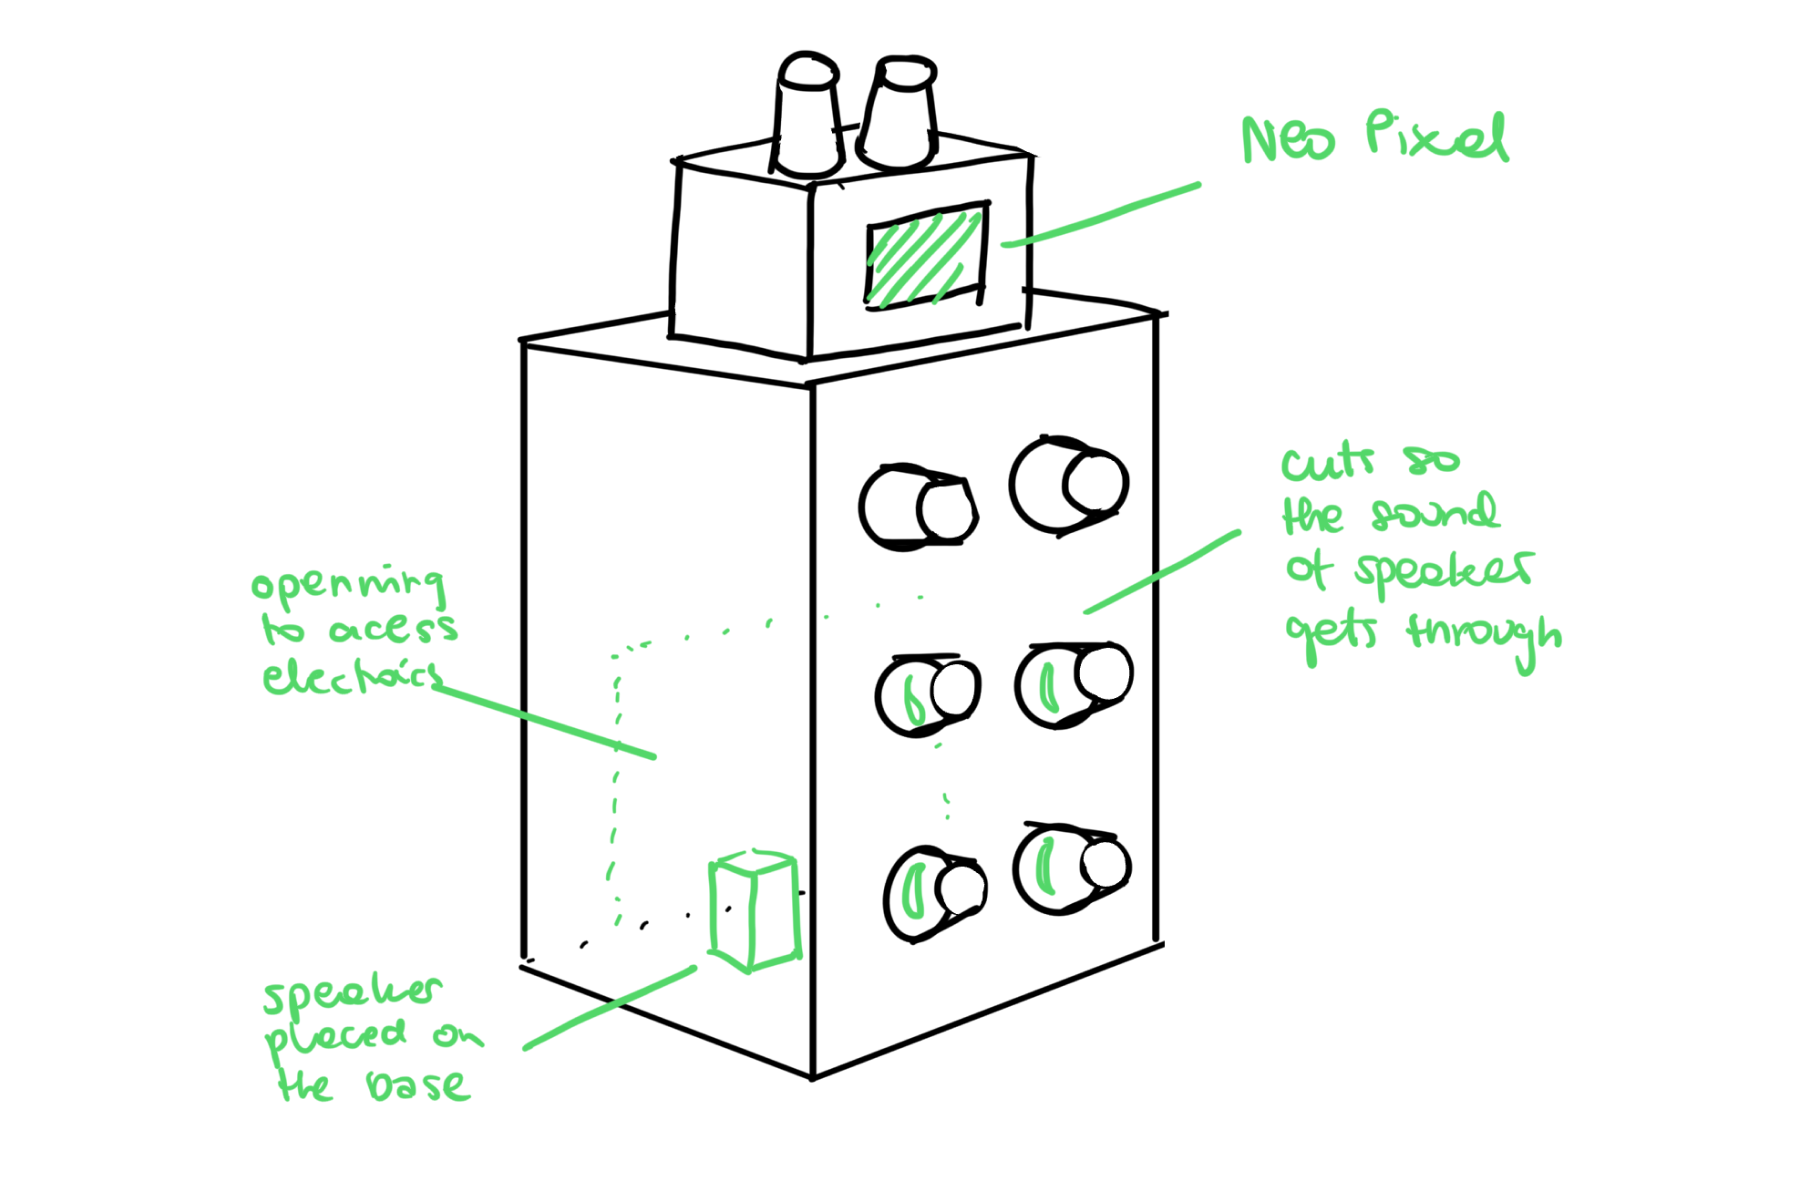 Neo Pixel
cuts so
the sound
of speaker
gets through
openning
to acess
electroics
speaker
placed on
the base